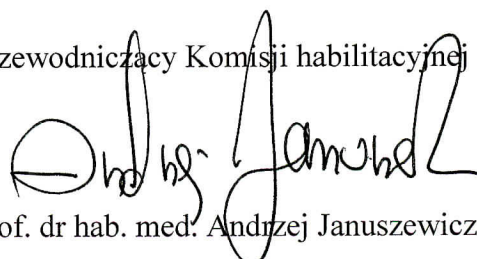 zewodniczący Komisji habilitacyjnej
Andrzej Januszewicz
of. dr hab. med. Andrzej Januszewicz